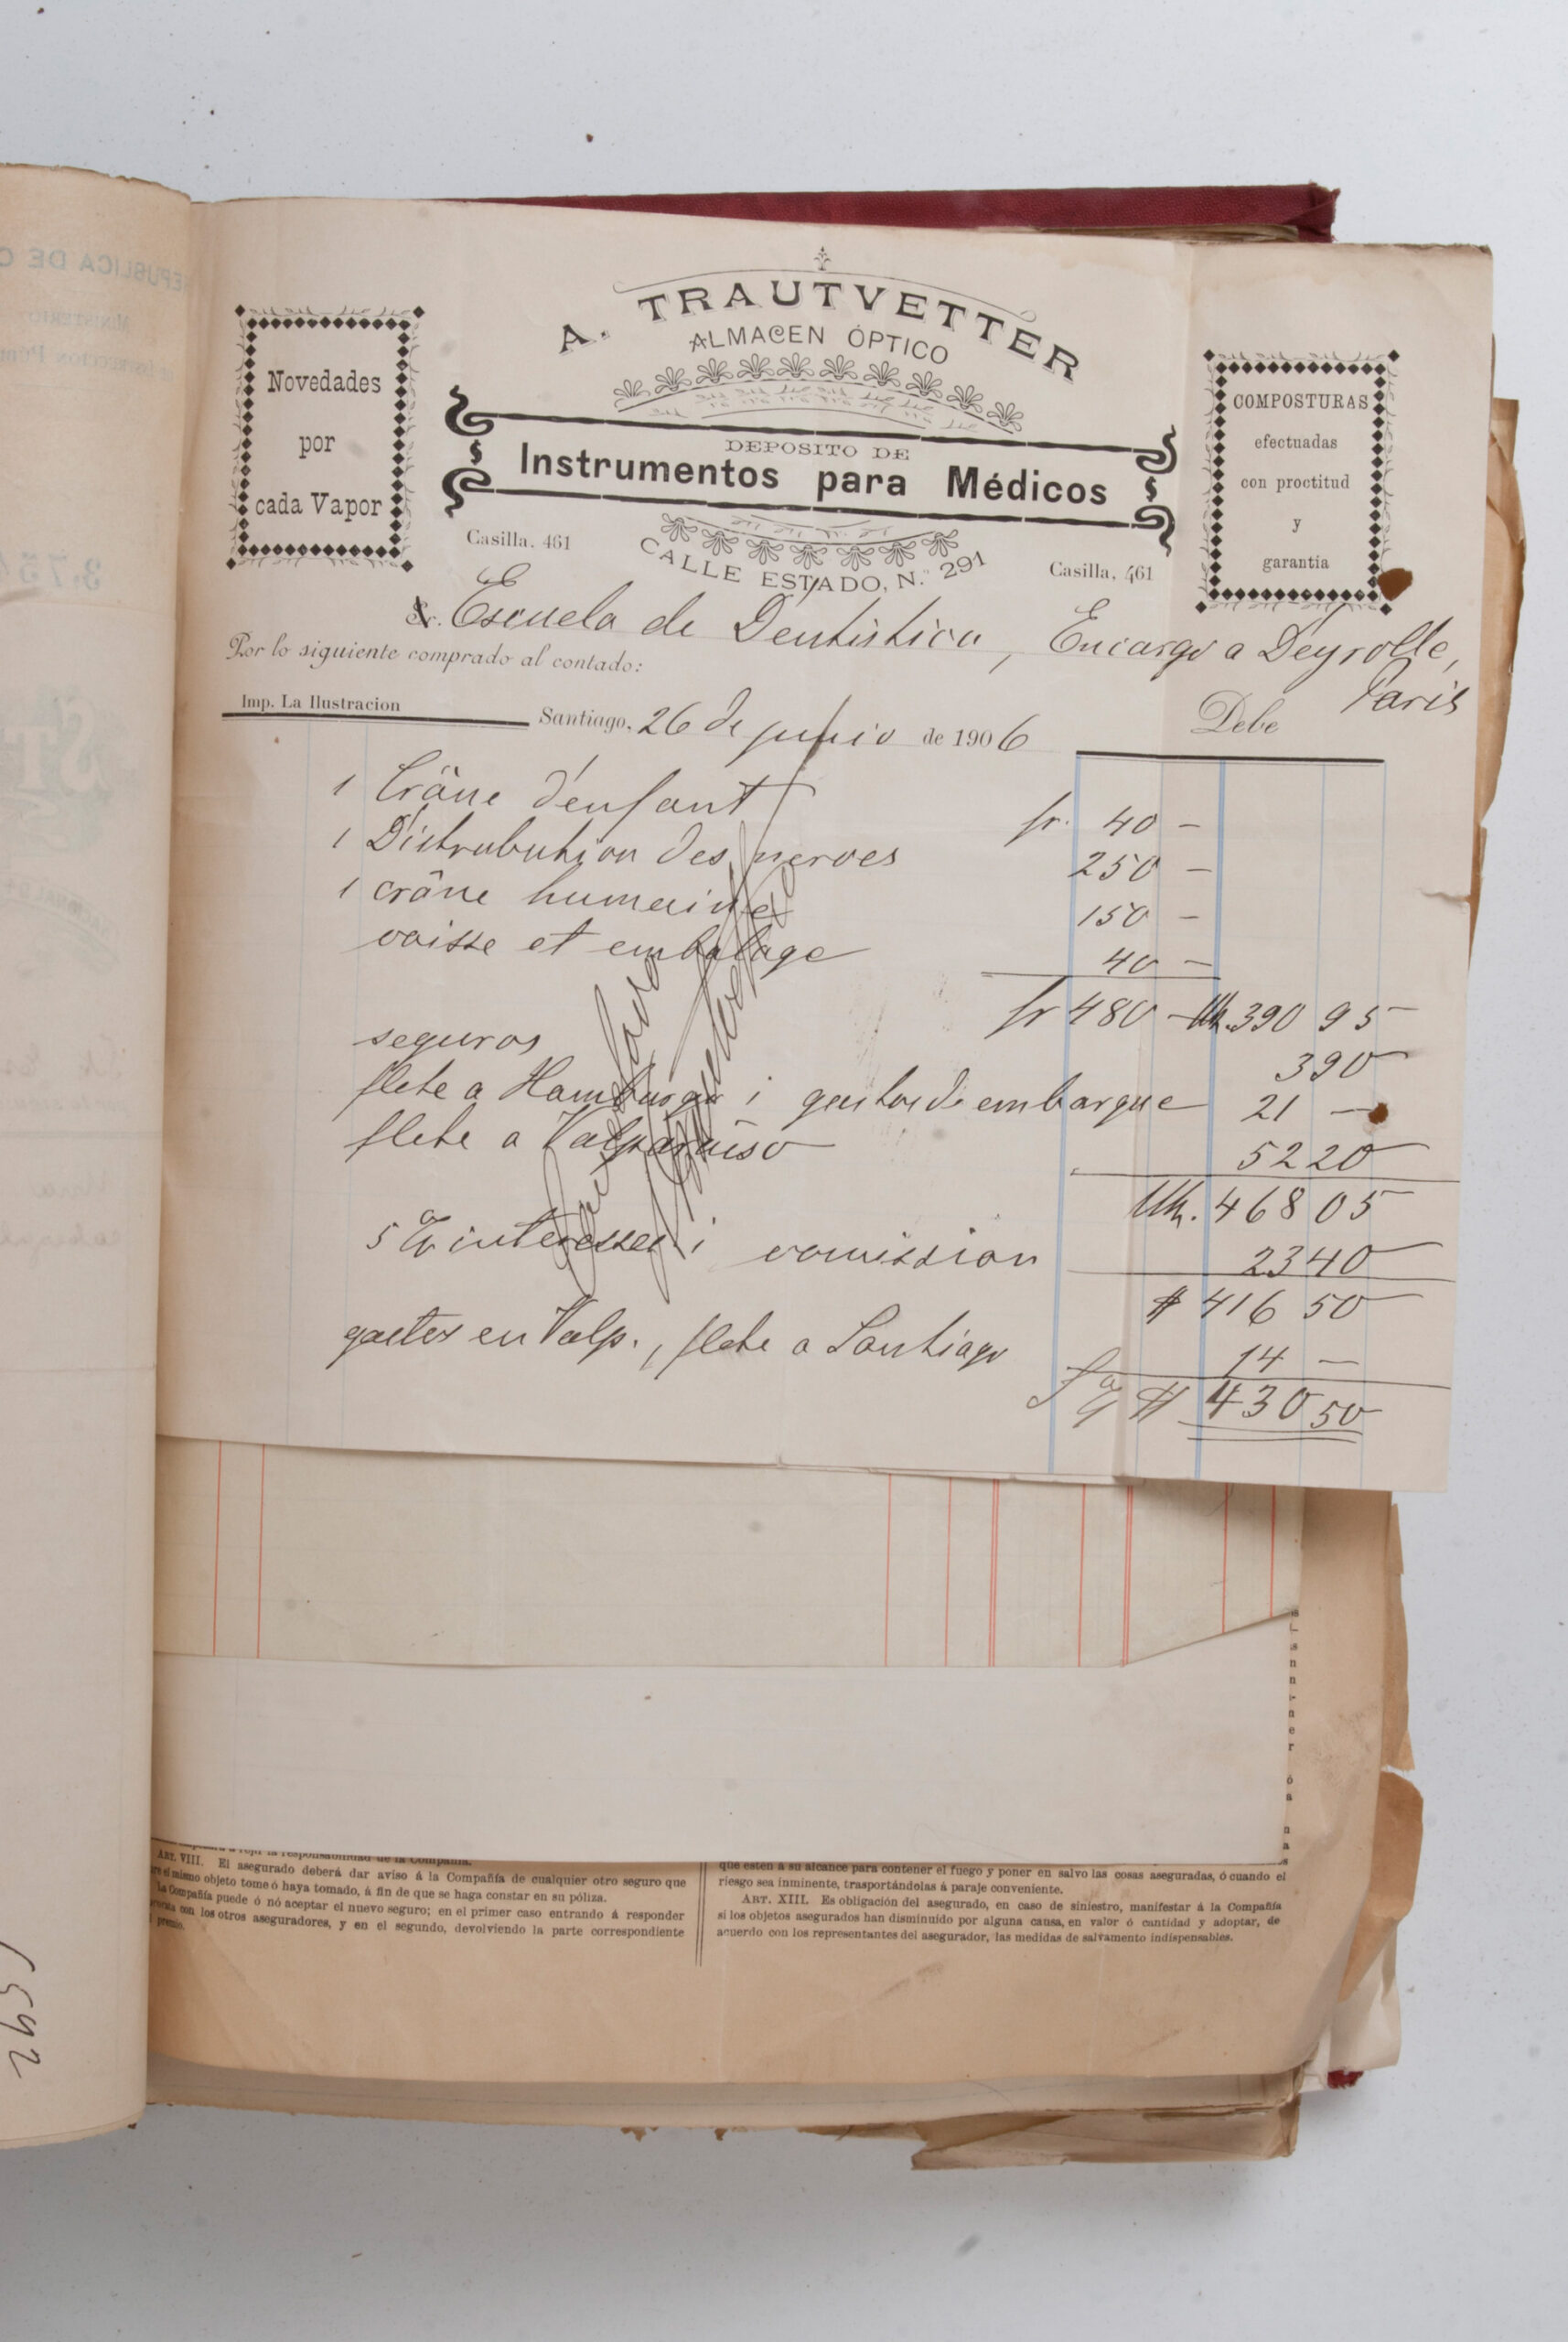 A. TRAUTVETTER
ALMACEN ÓPTICO
DEPOSITO DE
Instrumentos para Médicos
CALLE ESTADO, N.° 291
Novedades
por
cada Vapor
COMPOSTURAS
efectuadas
con proctitud
y
garantia
Casilla, 461
Casilla, 461
Sr. Escuela de Dentistica, Encargo a Deyrolle,
Paris
Por lo siguiente comprado al contado:
Imp. La Ilustracion
Debe
Santiago, 26 de junio de 1906
1 Crâne d'enfant fr. 40 —
1 Distrubution des nerves 250 —
1 crâne humain 150 —
caisse et embalage 40 —
fr 480 — Mk. 390 95
seguros 390
flete a Hamburgo i gastos de embarque 21 —
flete a Valparaiso 5220
Mk. 468 05
5% interesses i comission 2340
$ 416 50
gastos en Valp., flete a Santiago 14 —
$ 430 50
ART. VIII. El asegurado deberá dar aviso á la Compañía de cualquier otro seguro que
el mismo objeto tome ó haya tomado, á fin de que se haga constar en su póliza.
La Compañía puede ó nó aceptar el nuevo seguro; en el primer caso entrando á responder
con los otros aseguradores, y en el segundo, devolviendo la parte correspondiente
premio.
que estén a su alcance para contener el fuego y poner en salvo las cosas aseguradas, ó cuando el
riesgo sea inminente, trasportándolas á paraje conveniente.
ART. XIII. Es obligación del asegurado, en caso de siniestro, manifestar á la Compañía
si los objetos asegurados han disminuido por alguna causa, en valor ó cantidad y adoptar, de
acuerdo con los representantes del asegurador, las medidas de salvamento indispensables.